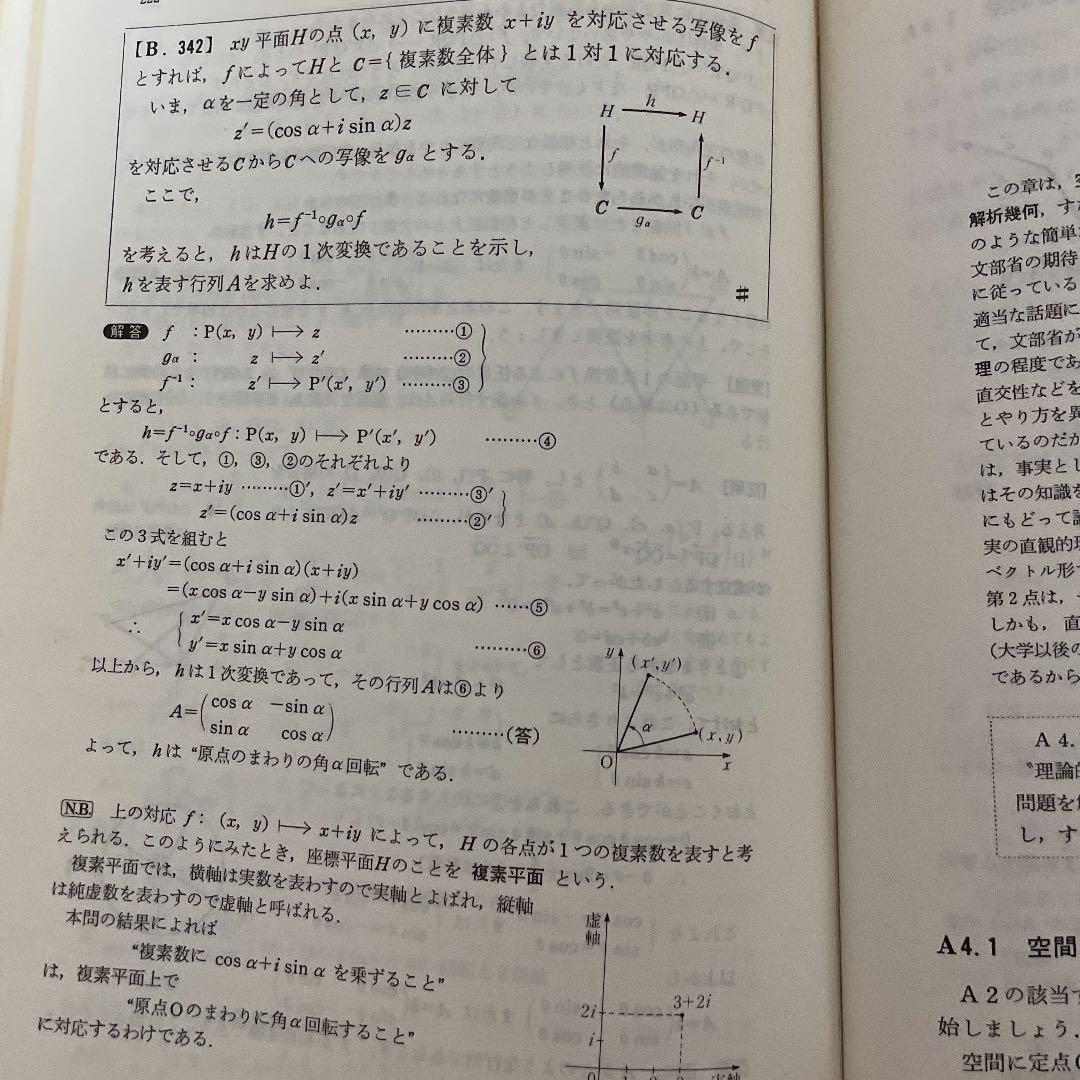 [B. 342] xy平面Hの点(x, y)に複素数 x+iy を対応させる写像をf
とすれば, fによってHと C={複素数全体}とは1対1に対応する.
いま, αを一定の角として, z∈C に対して
z′=(cos α+i sin α)z
を対応させるCからCへの写像をgα とする.
ここで,
h=f⁻¹∘gα∘f
を考えると, hはHの1次変換であることを示し,
hを表す行列Aを求めよ.
#
H h H
f f⁻¹
C gα C
解答 f : P(x, y) ⟼ z ………①
gα : z ⟼ z′ ………②
f⁻¹ : z′ ⟼ P′(x′, y′) ………③
とすると,
h=f⁻¹∘gα∘f : P(x, y) ⟼ P′(x′, y′) ………④
である. そして, ①, ③, ②のそれぞれより
z=x+iy ………①′, z′=x′+iy′ ………③′
z′=(cos α+i sin α)z ………②′
この3式を組むと
x′+iy′=(cos α+i sin α)(x+iy)
=(x cos α−y sin α)+i(x sin α+y cos α) ……⑤
∴ { x′=x cos α−y sin α
y′=x sin α+y cos α ………⑥
以上から, hは1次変換であって, その行列Aは⑥より
A=(cos α −sin α
sin α cos α) ………(答)
よって, hは “原点のまわりの角α回転” である.
y (x′, y′)
α (x, y)
O x
N.B. 上の対応 f : (x, y) ⟼ x+iy によって, H の各点が1つの複素数を表すと考
えられる. このようにみたとき, 座標平面Hのことを 複素平面 という.
複素平面では, 横軸は実数を表わすので実軸とよばれ, 縦軸
は純虚数を表わすので虚軸と呼ばれる.
本問の結果によれば
“複素数に cos α+i sin α を乗ずること”
は, 複素平面上で
“原点Oのまわりに角α回転すること”
に対応するわけである.
虚軸
3+2i
2i
i
この章は, 空
解析幾何, すな
のような簡単
文部省の期待
に従っている
適当な話題に
て, 文部省が
理の程度であ
直交性などを
とやり方を異
ているのだか
は, 事実とし
はその知識を
にもどって論
実の直観的理
ベクトル形で
第2点は,
しかも, 直
(大学以後の
であるから
A 4.
“理論的
問題を
し, す
A4.1 空間
A 2の該当
始しましょう.
空間に定点O